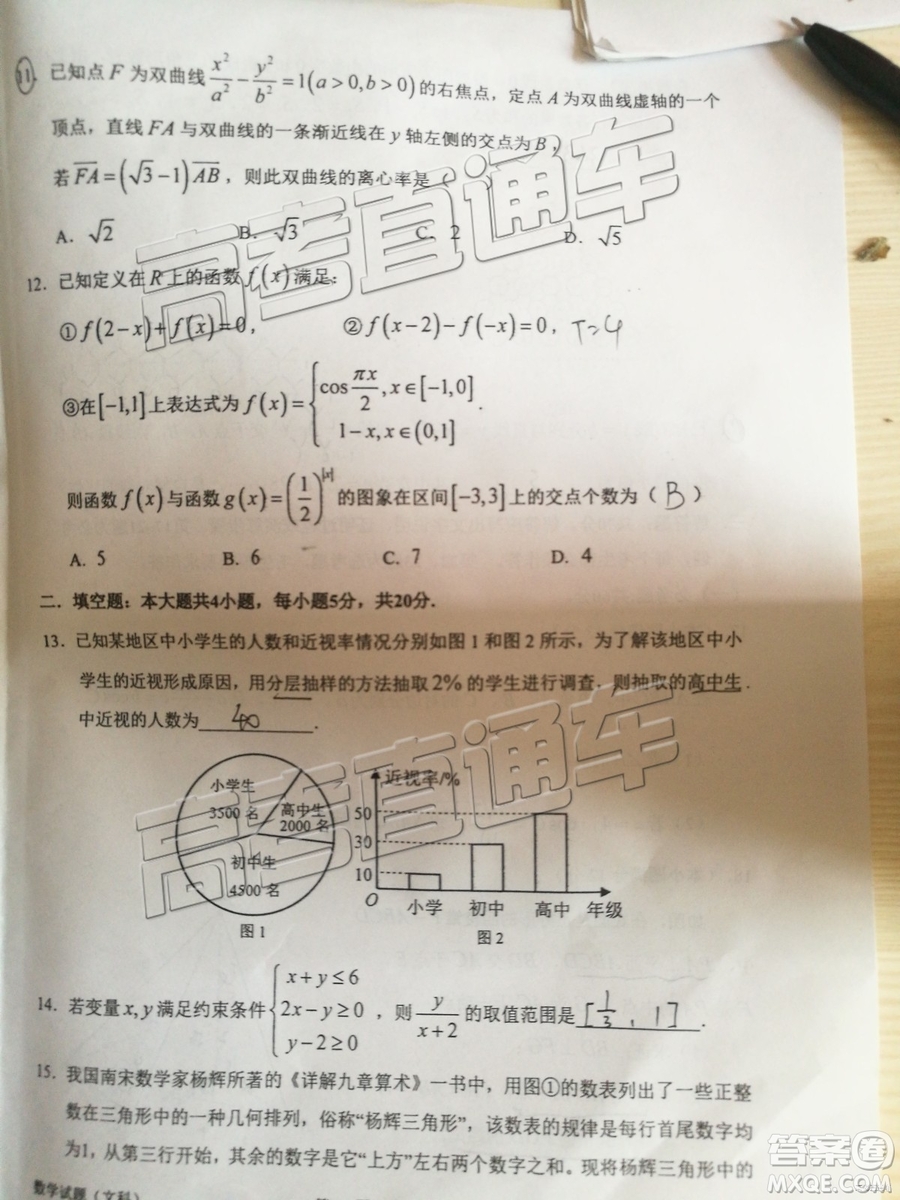 11. 已知点 F 为双曲线 x²/a² − y²/b² = 1(a > 0, b > 0) 的右焦点，定点 A 为双曲线虚轴的一个
顶点，直线 FA 与双曲线的一条渐近线在 y 轴左侧的交点为 B，
若 FA = (√3 − 1) AB，则此双曲线的离心率是（
A. √2 B. √3 C. 2 D. √5
12. 已知定义在 R 上的函数 f(x) 满足：
① f(2−x)+f(x)=0， ② f(x−2)−f(−x)=0， T=4
③在[−1,1]上表达式为 f(x) = { cos πx/2, x∈[−1,0]
1−x, x∈(0,1] .
则函数 f(x) 与函数 g(x) = (1/2)^|x| 的图象在区间[−3,3]上的交点个数为（ B ）
A. 5 B. 6 C. 7 D. 4
二．填空题：本大题共4小题，每小题5分，共20分．
13. 已知某地区中小学生的人数和近视率情况分别如图 1 和图 2 所示，为了解该地区中小
学生的近视形成原因，用分层抽样的方法抽取 2% 的学生进行调查，则抽取的高中生
中近视的人数为 40 ．
小学生
3500 名
高中生
2000 名
初中生
4500 名
图 1
近视率/%
50
30
10
O
小学 初中 高中 年级
图 2
14. 若变量 x, y 满足约束条件 { x+y≤6
2x−y≥0
y−2≥0
，则 y/(x+2) 的取值范围是 [1/3, 1] ．
15. 我国南宋数学家杨辉所著的《详解九章算术》一书中，用图①的数表列出了一些正整
数在三角形中的一种几何排列，俗称“杨辉三角形”，该数表的规律是每行首尾数字均
为1，从第三行开始，其余的数字是它“上方”左右两个数字之和。现将杨辉三角形中的
数学试题（文科）
高考直通车
高考直通车
答案圈
MXQE.COM